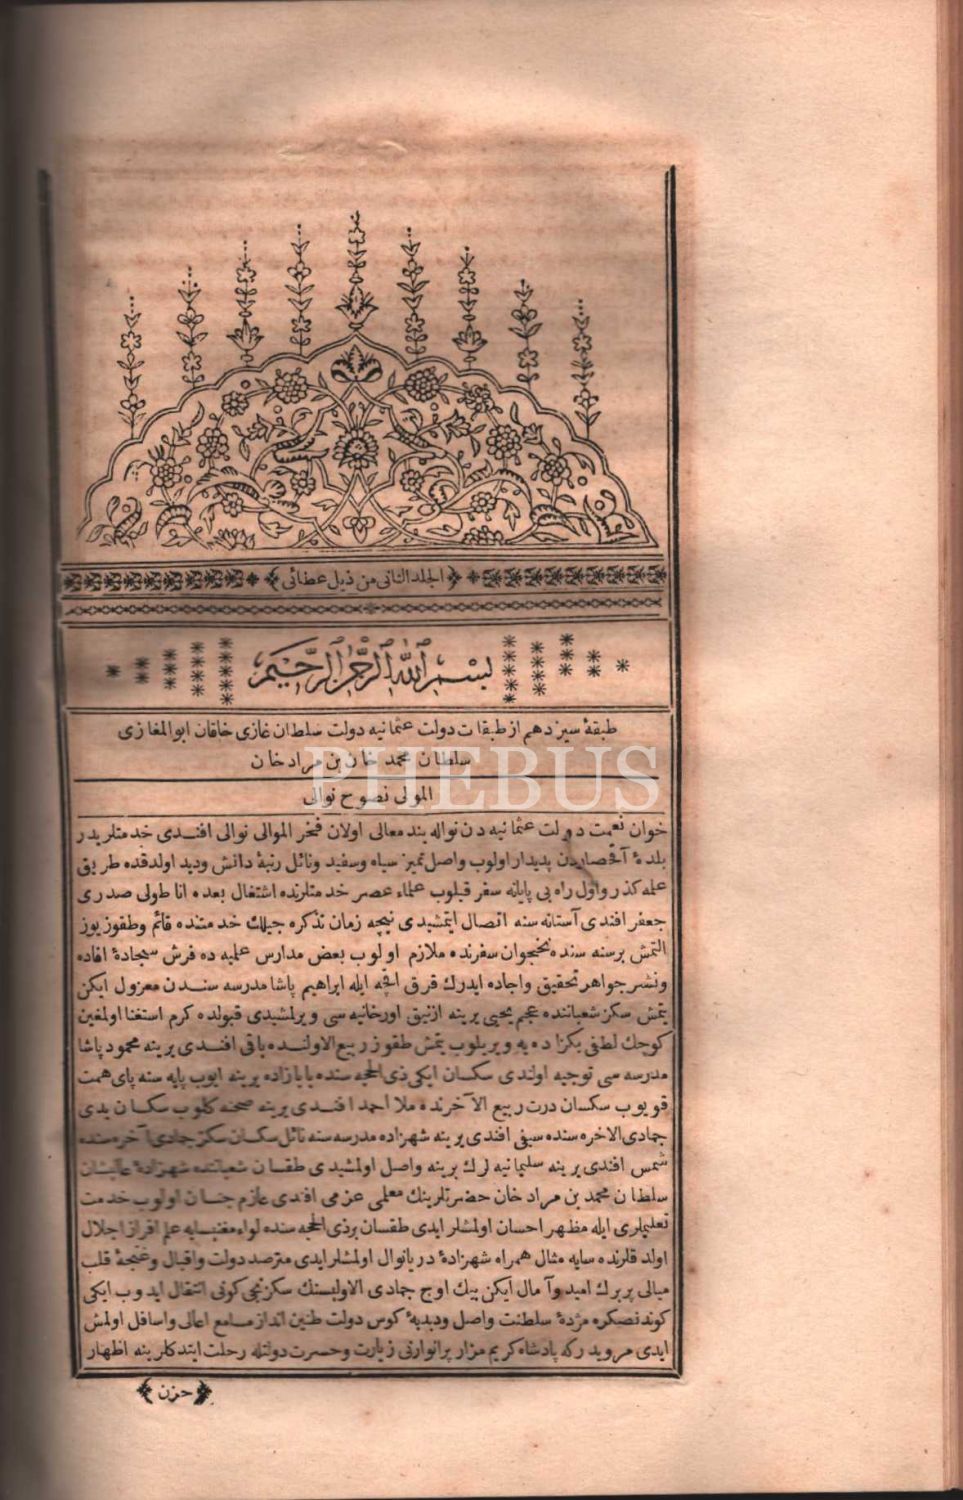 الجلد الثانی من ذیل عطائی
بسم الله الرحمن الرحیم
طبقهٔ سیزدهم از طبقات دولت عثمانیه دولت سلطان غازی خاقان ابو المغازی
سلطان محمد خان بن مراد خان
PHEBUS
المولی نصوح نوالی
خوان نعمت دولت عثمانیه دن نواله بند معالی اولان فخر الموالی نوالی افندی خدمتلریدر
بلدهٔ آقحصاردن پدیدار اولوب واصل تمیز سیاه وسفید ونائل رتبهٔ دانش ودید اولدقده طریق
علمه کذر واول راه بی پایانه سفر قیلوب علماء عصر خدمتلرنده اشتغال بعده اناطولی صدری
جعفر افندی آستانه سنه اتصال ایتمشیدی نیجه زمان تذکره جیلك خدمتنده قائم وطقوز یوز
التمش برسنه سنده نخجوان سفرنده ملازم اولوب بعض مدارس علمیه ده فرش سجادهٔ افاده
ونشر جواهر تحقیق واجاده ایدرك قرق اقچه ایله ابراهیم پاشا مدرسه سندن معزول ایکن
یتمش سکز شعباننده عجم یحیی یرینه ازنیق اورخانیه سی ویرلمشیدی قبولده کرم استغنا اولمغین
کوچك لطفی بکزاده یه ویریلوب یتمش طقوز ربیع الاولنده باقی افندی یرینه محمود پاشا
مدرسه سی توجیه اولندی سکسان ایکی ذی الحجه سنده بابازاده یرینه ایوب پایه سنه پای همت
قویوب سکسان درت ربیع الآخرنده ملا احمد افندی یرینه صحنه کلوب سکسان یدی
جمادی الاخره سنده سیفی افندی یرینه شهزاده مدرسه سنه نائل سکسان سکز جمادی آخره سنده
شمس افندی یرینه سلیمانیه لرك برینه واصل اولمشیدی طقسان شعباننده شهزادهٔ عالیشان
سلطان محمد بن مراد خان حضرتلرینك معلمی عزمی افندی عازم جنان اولوب خدمت
تعلیملری ایله مظهر احسان اولمشلر ایدی طقسان بر ذی الحجه سنده لواء مغنیسایه علم افراز اجلال
اولدقلرنده سایه مثال همراه شهزادهٔ دریانوال اولمشلر ایدی مترصد دولت واقبال وغنچهٔ قلب
میالی پربرك امید وآمال ایکن بیك اوج جمادی الاولیسنك سکزنجی کونی انتقال ایدوب ایکی
کوندنصکره مژدهٔ سلطنت واصل ودبدبهٔ کوس دولت طنین انداز مسامع اعالی واسافل اولمش
ایدی مرویدر که پادشاه کریم مزار پرانوارنی زیارت وحسرت دولتله رحلت ایتدکلرینه اظهار
حزن